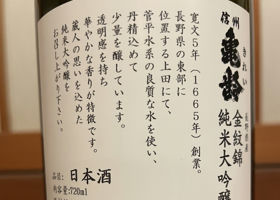 信州
亀齢
きれい
長野県産
金紋錦
純米大吟醸
寛文5年（1665年）創業。
長野県の東部に
位置する上田にて、
菅平水系の良質な水を使い、
丹精込めて
少量を醸しています。
透明感を持ち
華やかな香りが特徴です。
蔵人の思いを込めた
純米大吟醸を
お召し上がり下さい。
品目: 日本酒
内容量:720ml